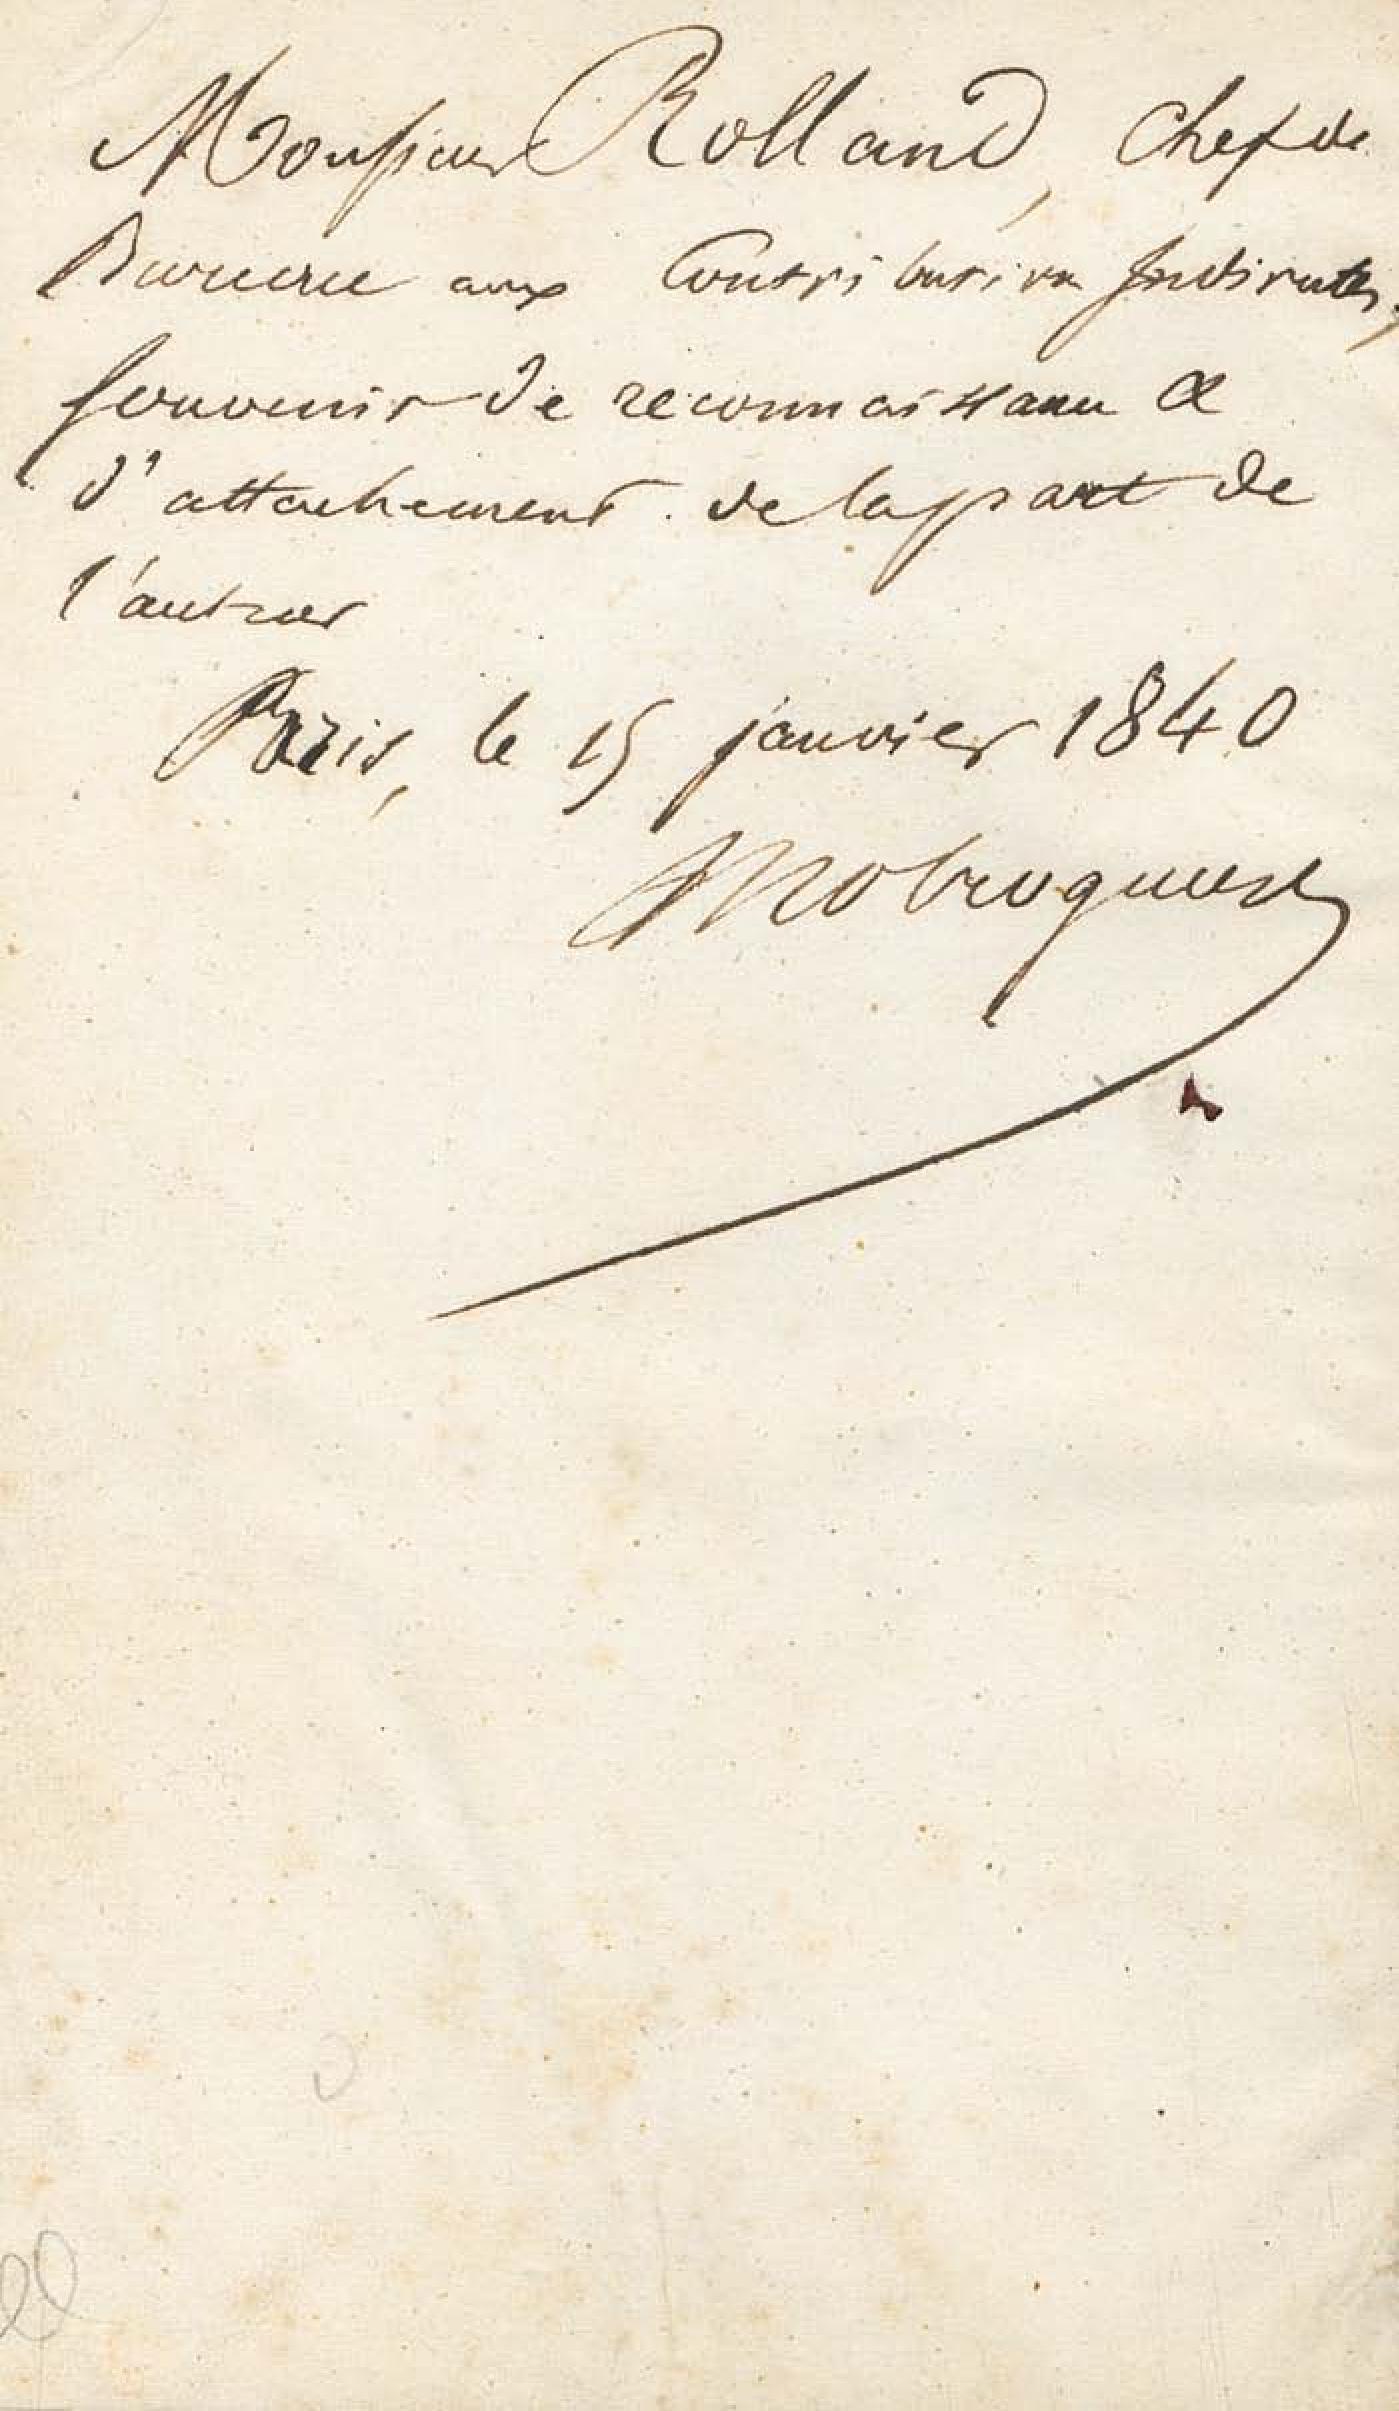 Monsieur Rolland, Chef de
Bureau aux Contributions Indirectes,
Souvenir de reconnaissance &
d'attachement de la part de
l'auteur
Paris, le 15 janvier 1840